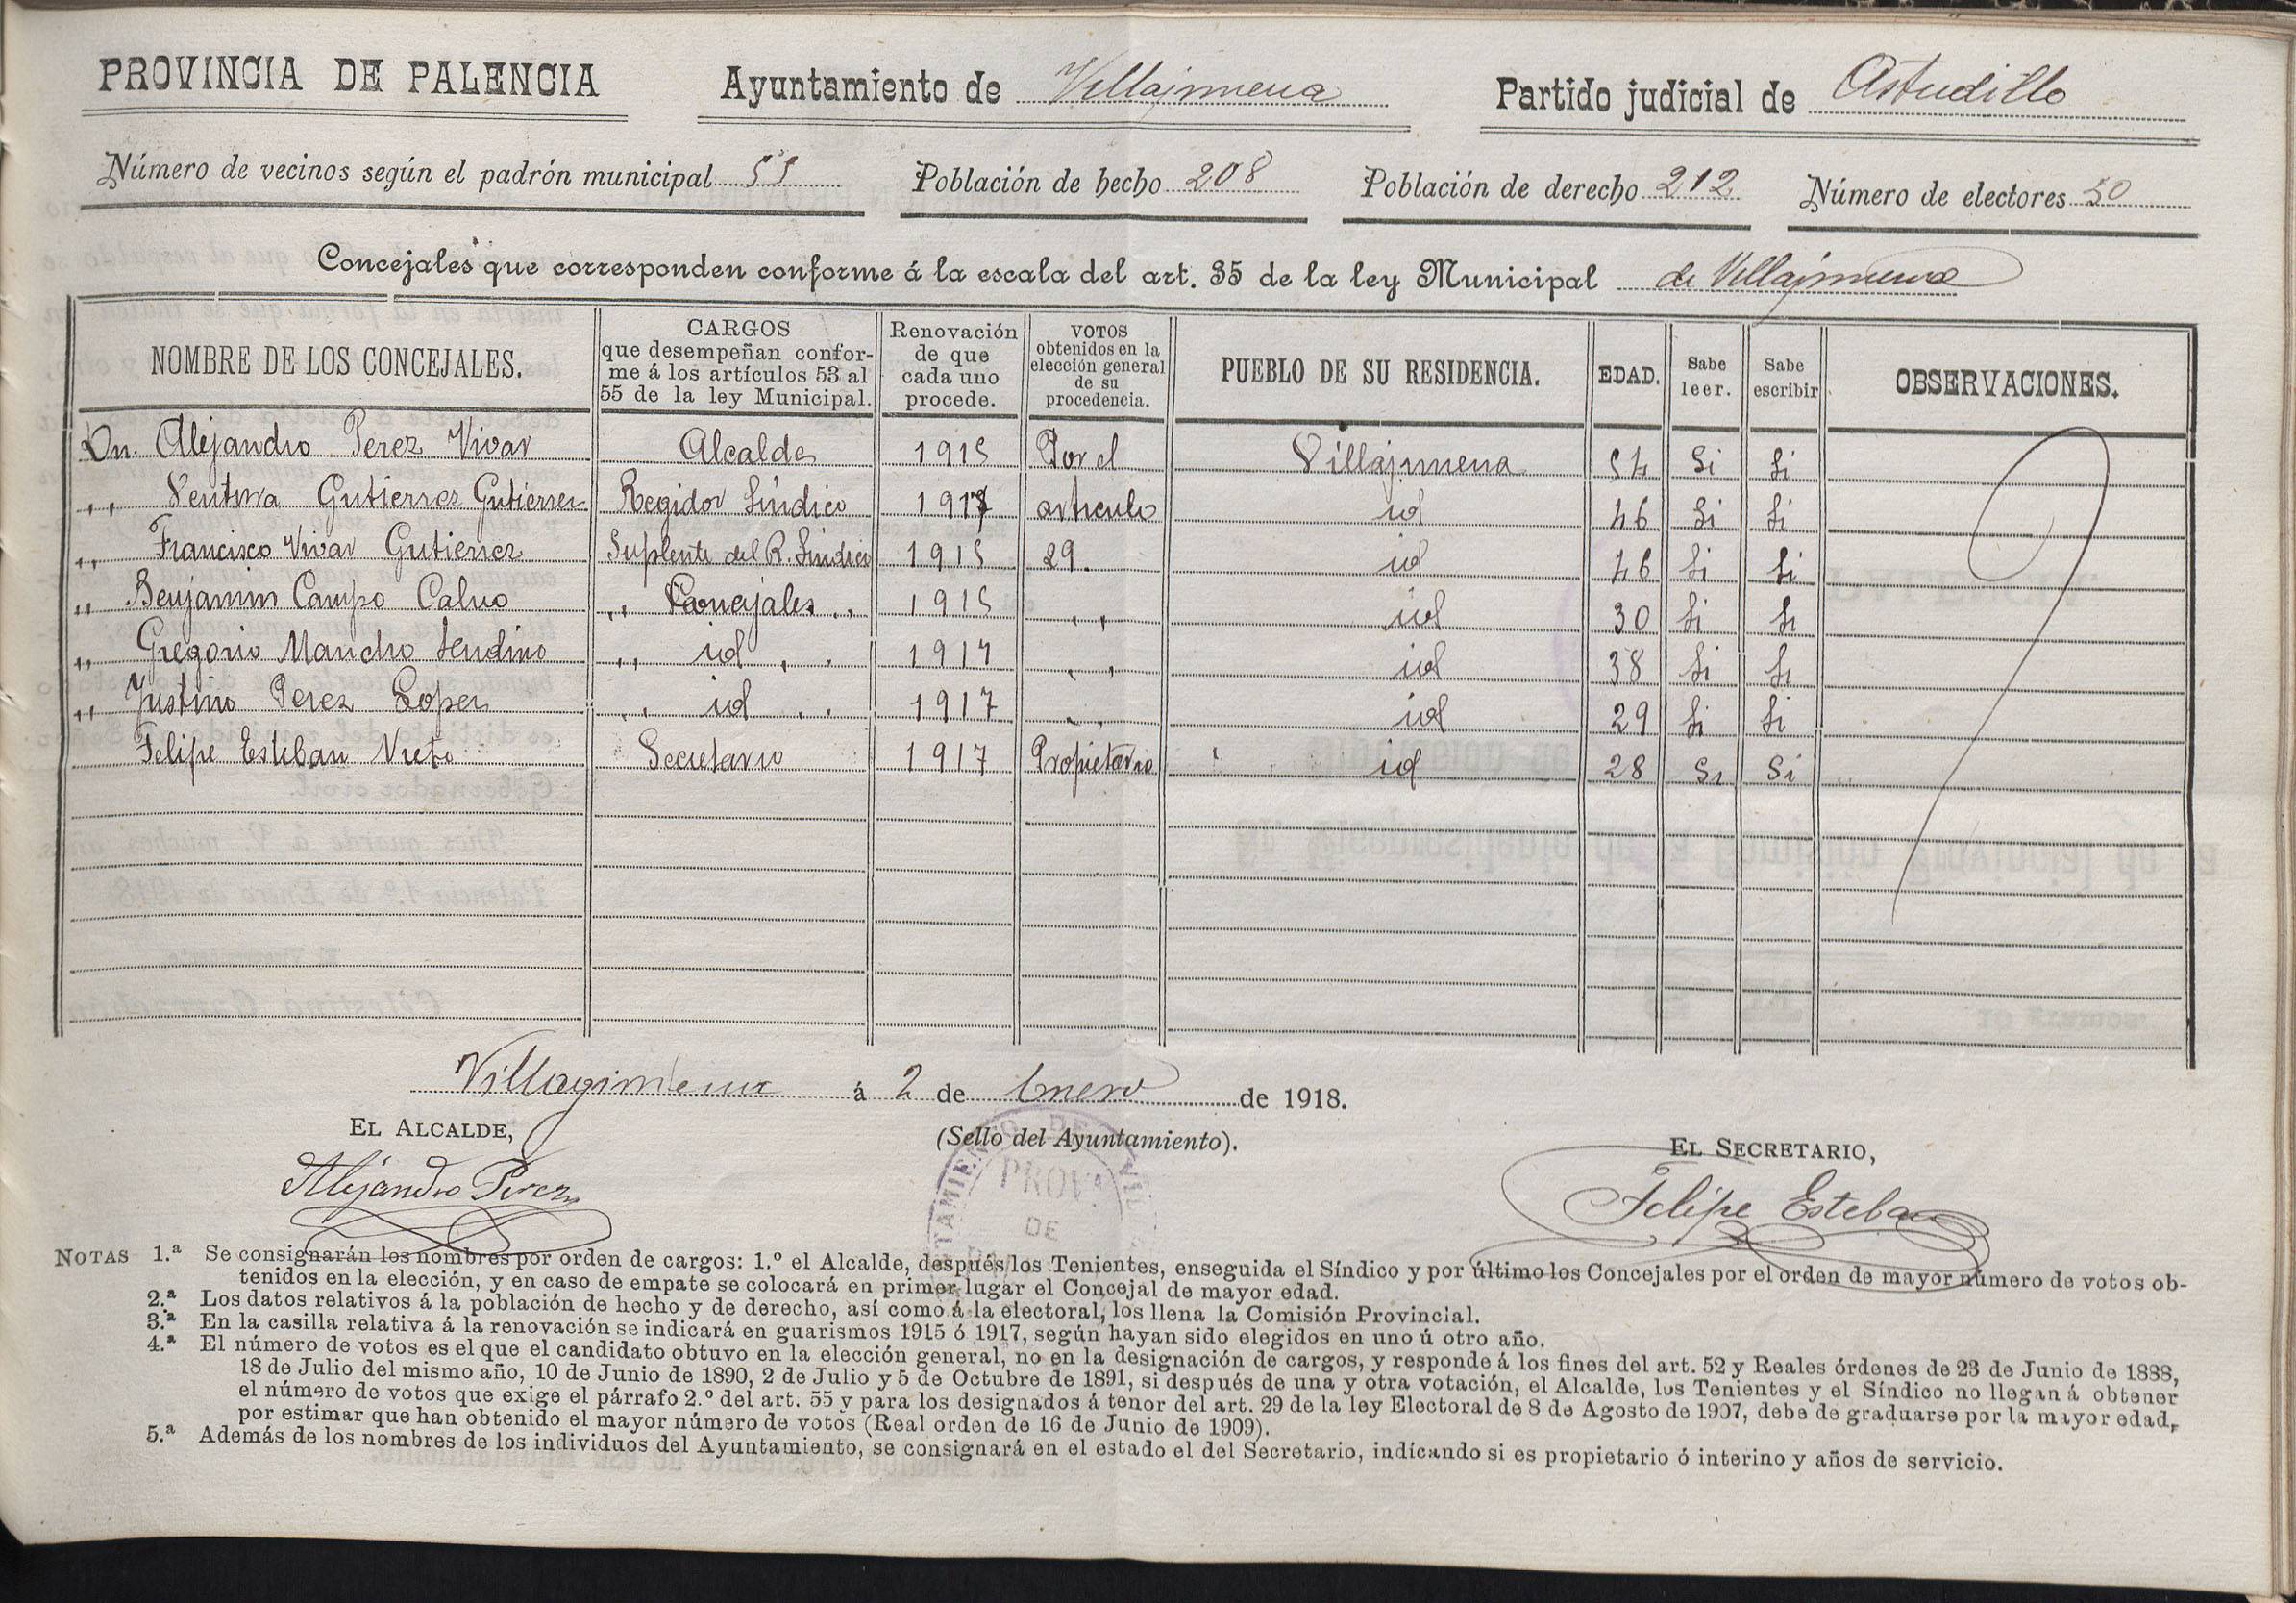 PROVINCIA DE PALENCIA Ayuntamiento de Villajimena Partido judicial de Astudillo
Número de vecinos según el padrón municipal 55 Población de hecho 208 Población de derecho 212 Número de electores 50
Concejales que corresponden conforme á la escala del art. 35 de la ley Municipal de Villajimena
NOMBRE DE LOS CONCEJALES. CARGOS que desempeñan confor-me á los artículos 53 al 55 de la ley Municipal. Renovación de que cada uno procede. VOTOS obtenidos en la elección general de su procedencia. PUEBLO DE SU RESIDENCIA. EDAD. Sabe leer. Sabe escribir OBSERVACIONES.
Dn. Alejandro Perez Vivar Alcalde 1915 Por el Villajimena 54 Si Si
,, Ventura Gutierrez Gutierrez Regidor Sindico 1917 articulo id 46 Si Si
,, Francisco Vivar Gutierrez Suplente del R. Sindico 1915 29. id 46 Si Si
,, Benjamin Campo Calvo ,, Concejales ,, 1915 ,, id 30 Si Si
,, Gregorio Mancho Sendino ,, id ,, 1917 ,, id 38 Si Si
,, Justino Perez Lopez ,, id ,, 1917 ,, id 29 Si Si
Felipe Esteban Nieto Secretario 1917 Propietario id 28 Si Si
Villagimena á 2 de Enero de 1918.
EL ALCALDE, (Sello del Ayuntamiento). EL SECRETARIO,
PROVª
DE
Alejandro Perez Felipe Esteban
NOTAS 1.ª Se consignarán los nombres por orden de cargos: 1.º el Alcalde, después los Tenientes, enseguida el Síndico y por último los Concejales por el orden de mayor número de votos ob-
tenidos en la elección, y en caso de empate se colocará en primer lugar el Concejal de mayor edad.
2.ª Los datos relativos á la población de hecho y de derecho, así como á la electoral, los llena la Comisión Provincial.
3.ª En la casilla relativa á la renovación se indicará en guarismos 1915 ó 1917, según hayan sido elegidos en uno ú otro año.
4.ª El número de votos es el que el candidato obtuvo en la elección general, no en la designación de cargos, y responde á los fines del art. 52 y Reales órdenes de 23 de Junio de 1888,
18 de Julio del mismo año, 10 de Junio de 1890, 2 de Julio y 5 de Octubre de 1891, si después de una y otra votación, el Alcalde, los Tenientes y el Síndico no llegan á obtener
el número de votos que exige el párrafo 2.º del art. 55 y para los designados á tenor del art. 29 de la ley Electoral de 8 de Agosto de 1907, debe de graduarse por la mayor edad,
por estimar que han obtenido el mayor número de votos (Real orden de 16 de Junio de 1909).
5.ª Además de los nombres de los individuos del Ayuntamiento, se consignará en el estado el del Secretario, indicando si es propietario ó interino y años de servicio.